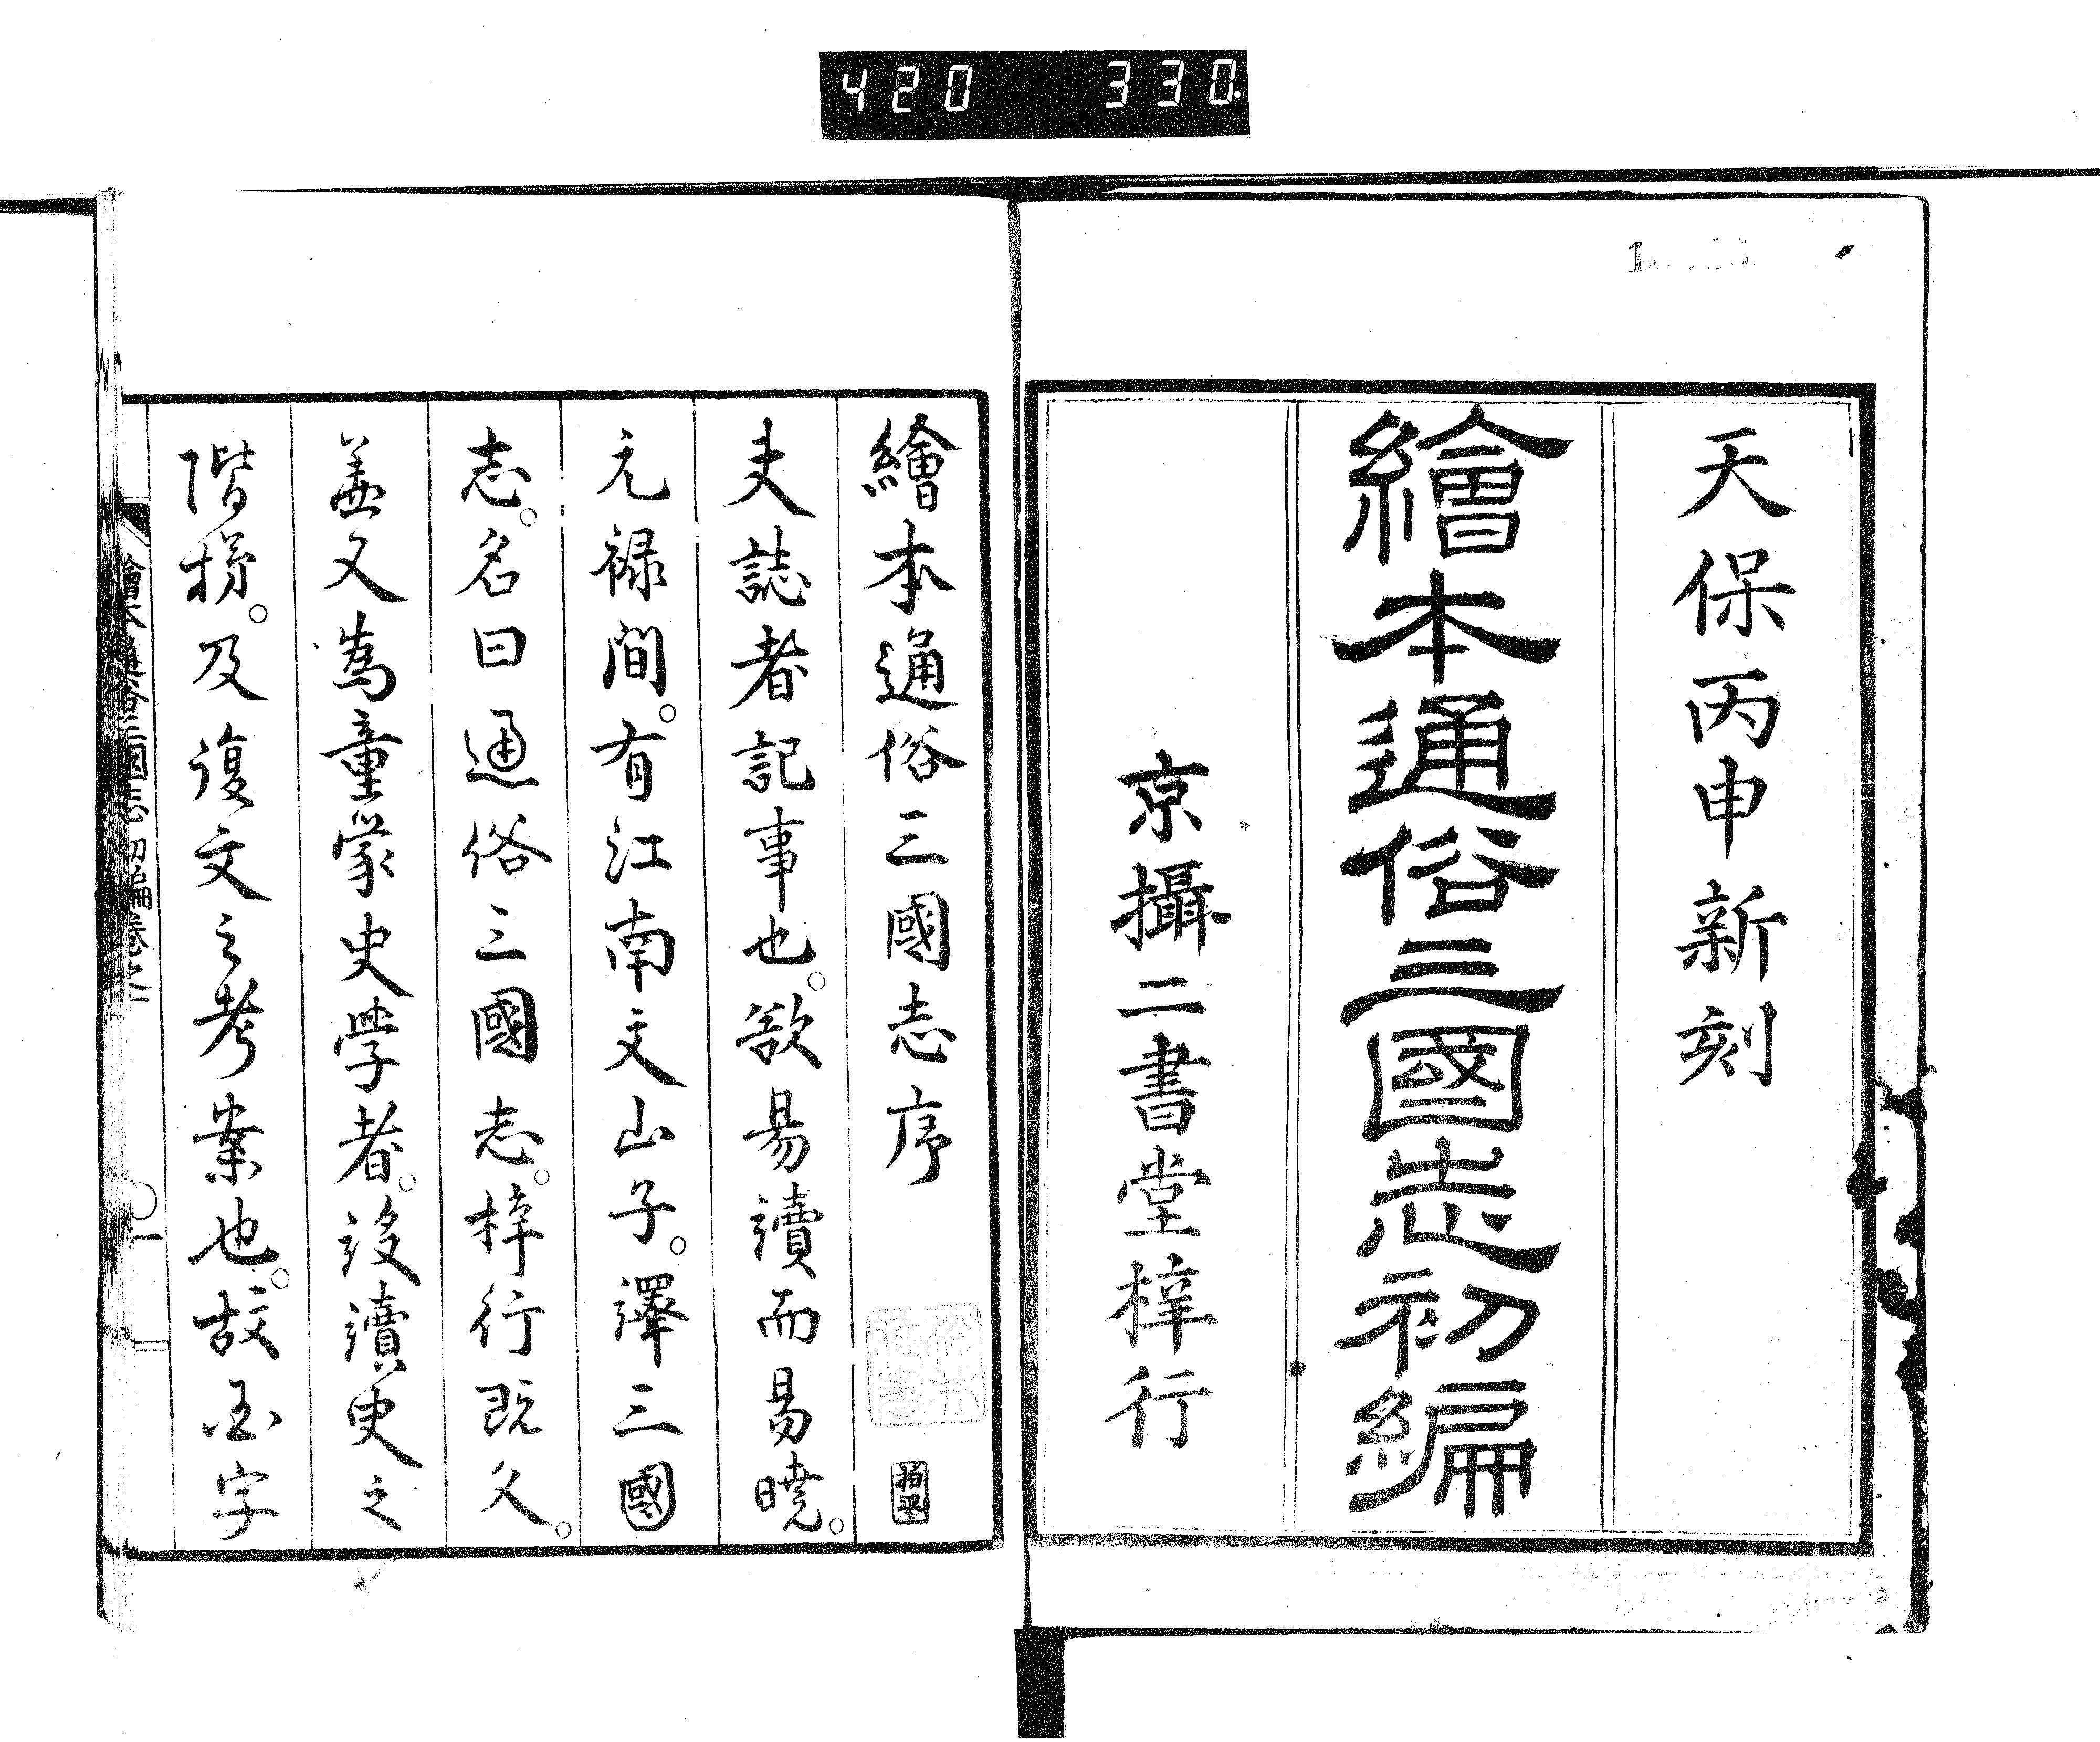 420 330.
天保丙申新刻
繪本通俗三國志初編
京攝二書堂梓行
繪本通俗三國志序
夫誌者記事也。欲易讀而易曉。
元禄間。有江南文山子。譯三國
志。名曰通俗三國志。梓行既久。
蓋又為童蒙史學者。設讀史之
階梯。及復文之考案也。故國字
繪本通俗三國志初編卷之一